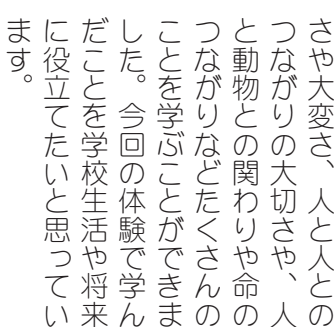 さや大変さ、人と人との
つながりの大切さや、人
と動物との関わりや命の
つながりなどたくさんの
ことを学ぶことができま
した。今回の体験で学ん
だことを学校生活や将来
に役立てたいと思ってい
ます。